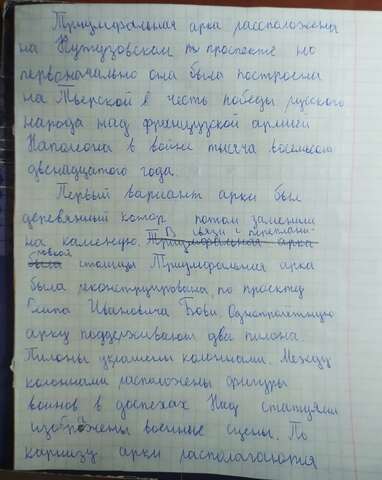 Триумфальная арка расположена
на Кутузовском проспекте но
первоначально она была построена
на Тверской в честь победы русского
народа над французской армией
Наполеона в войне тысяча восемьсот
двенадцатого года.
Первый вариант арки был
деревянный котор потом заменили
на каменую. Триумфальная арка В связи с переплани-
была ровкой столицы Триумфальная арка
была реконструирована по проекту
Осипа Ивановича Бови. Однопролетную
арку поддерживают два пилона.
Пилоны украшены колоннами. Между
колоннами расположены фигуры
воинов в доспехах Над статуями
изображены военные сцены. По
карнизу арки располагаются